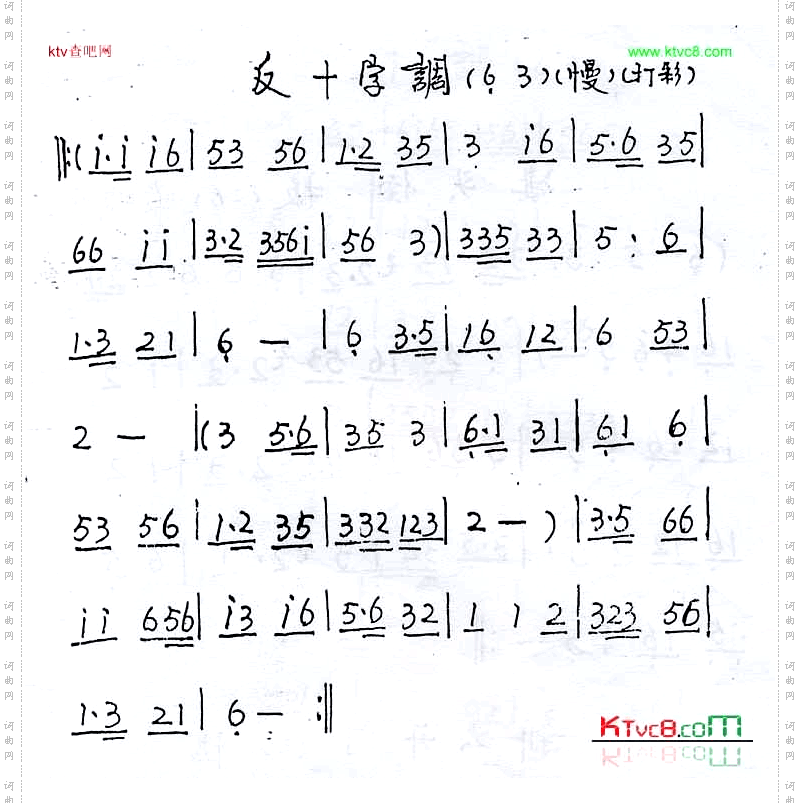 ktv查吧网
www.ktvc8.com
反十字調(6̣ 3)(慢)(打彩)
‖:(i·i i6|53 56|1·2 35|3 i6|5·6 35|
66 ii|3·2 356i|56 3)|335 33|5· 6|
1·3 21|6̣ —|6̣ 3·5|16̣ 12|6 53|
2 —|(3 5·6|35 3|6̣·1 31|6̣1 6̣|
53 56|1·2 35|332 123|2 —)|3·5 66|
ii 656|i3 i6|5·6 32|1 1 2|323 56|
1·3 21|6̣ — :‖
KTvc8.com
词曲网